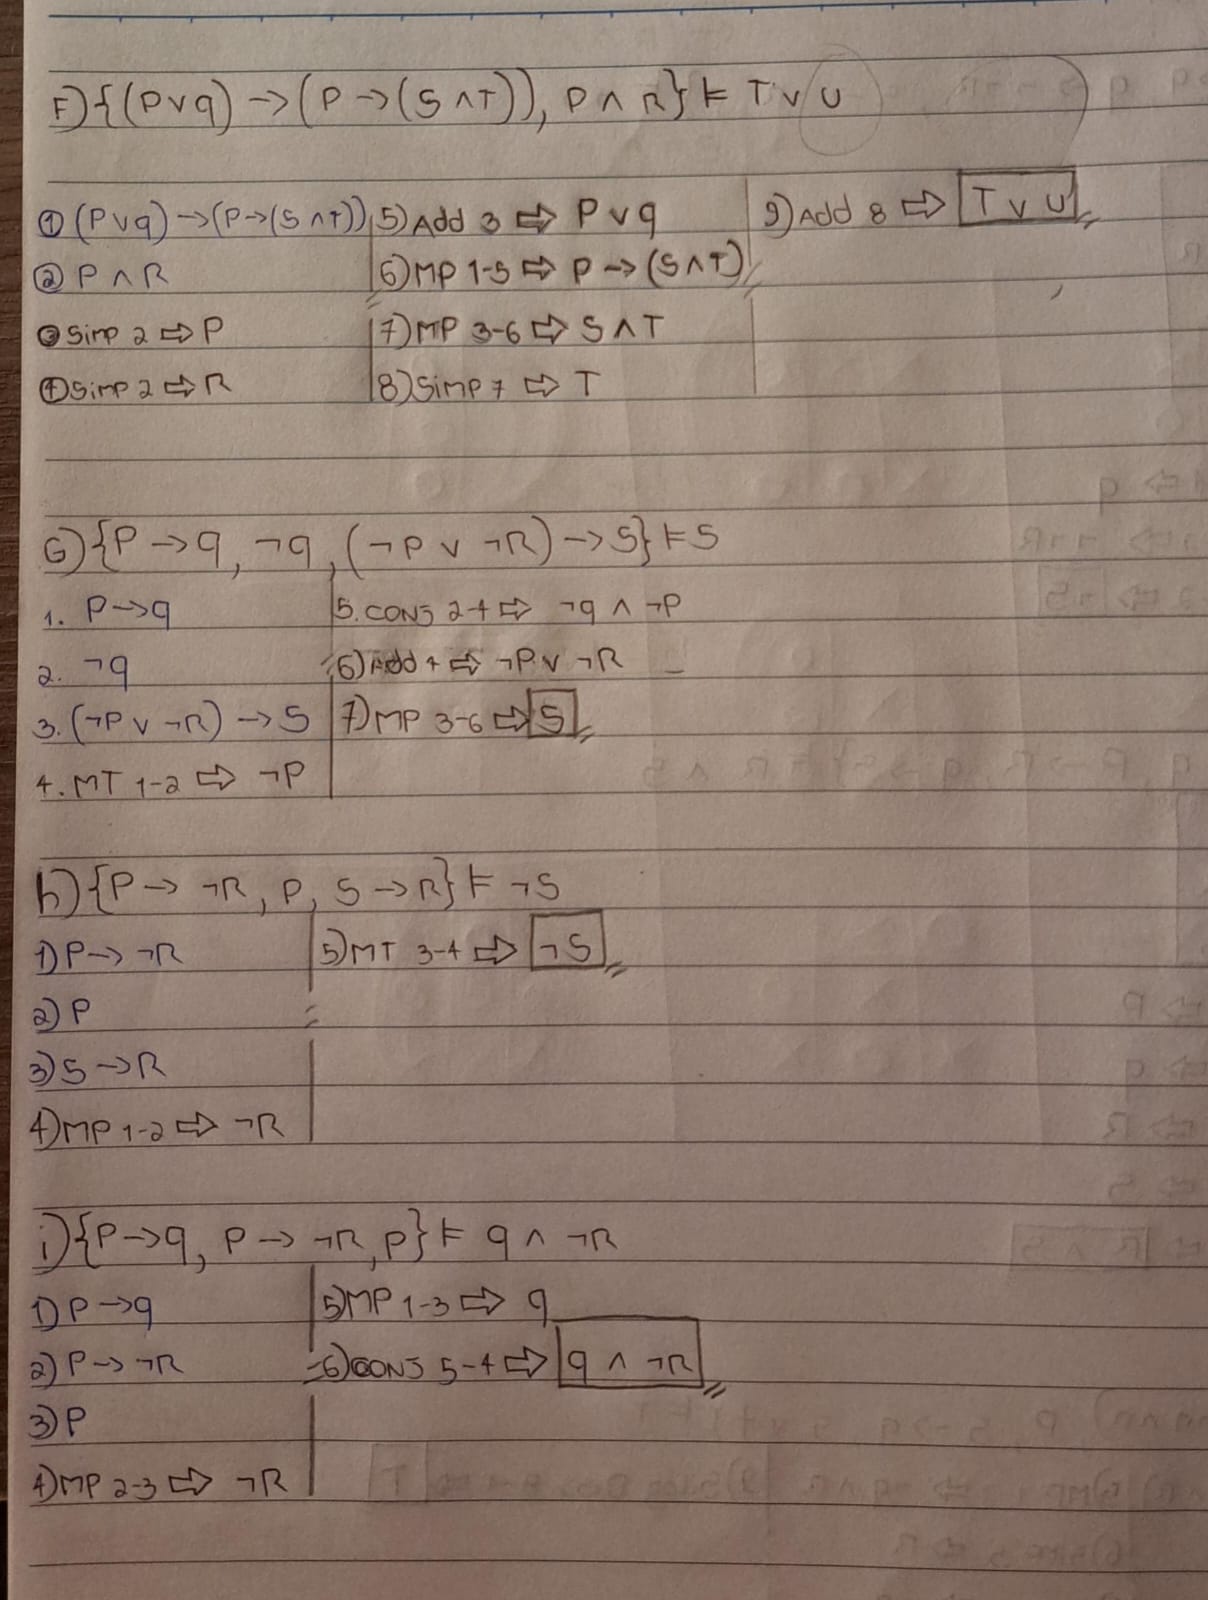 F) {(P∨q) → (P → (S ∧ T)), P ∧ R} ⊨ T ∨ U
① (P∨q) → (P → (S ∧ T))
② P ∧ R
③ Simp 2 ⇨ P
④ Simp 2 ⇨ R
5) Add 3 ⇨ P ∨ q
6) MP 1-5 ⇨ P → (S ∧ T)
7) MP 3-6 ⇨ S ∧ T
8) Simp 7 ⇨ T
9) Add 8 ⇨ T ∨ U
G) {P → q, ¬q, (¬P ∨ ¬R) → S} ⊨ S
1. P → q
2. ¬q
3. (¬P ∨ ¬R) → S
4. MT 1-2 ⇨ ¬P
5. CONJ 2-4 ⇨ ¬q ∧ ¬P
6) Add 4 ⇨ ¬P ∨ ¬R
7) MP 3-6 ⇨ S
h) {P → ¬R, P, S → R} ⊨ ¬S
1) P → ¬R
2) P
3) S → R
4) MP 1-2 ⇨ ¬R
5) MT 3-4 ⇨ ¬S
i) {P → q, P → ¬R, P} ⊨ q ∧ ¬R
1) P → q
2) P → ¬R
3) P
4) MP 2-3 ⇨ ¬R
5) MP 1-3 ⇨ q
6) CONJ 5-4 ⇨ q ∧ ¬R